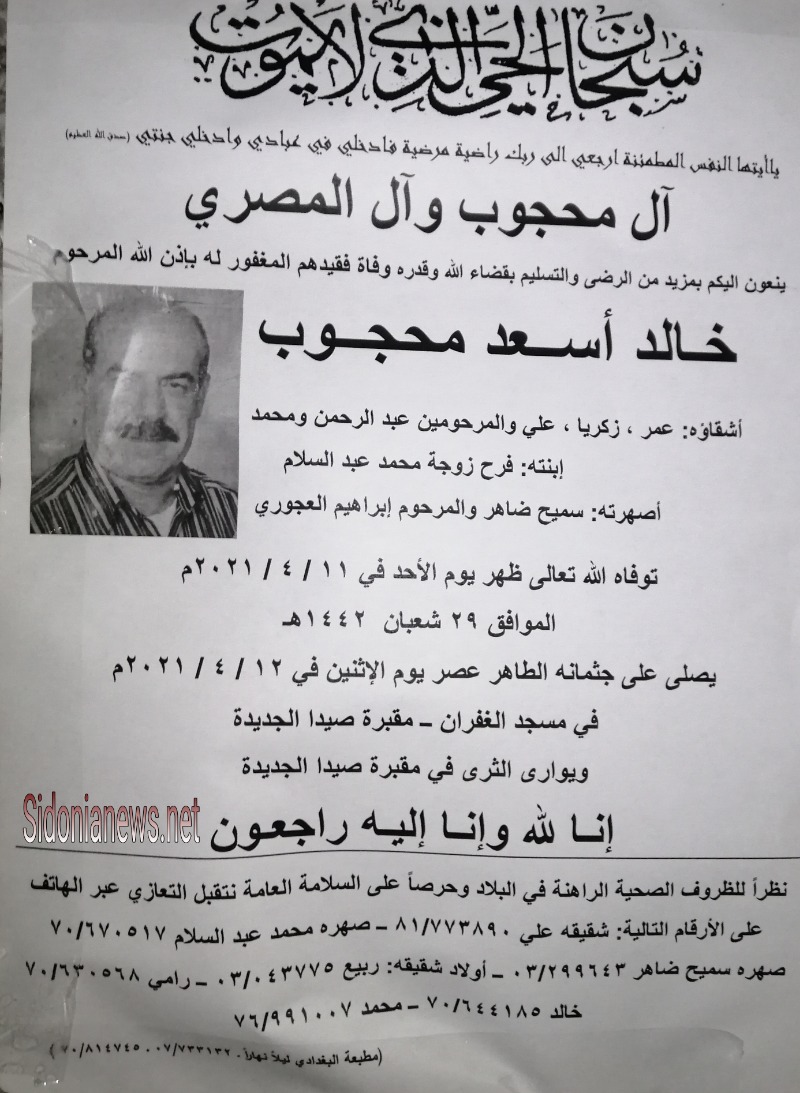 سبحان الحي الذي لا يموت
ياأيتها النفس المطمئنة ارجعي الى ربك راضية مرضية فادخلي في عبادي وادخلي جنتي (صدق الله العظيم)
آل محجوب وآل المصري
ينعون اليكم بمزيد من الرضى والتسليم بقضاء الله وقدره وفاة فقيدهم المغفور له بإذن الله المرحوم
خالد أسعد محجوب
أشقاؤه: عمر ، زكريا ، علي والمرحومين عبد الرحمن ومحمد
إبنته: فرح زوجة محمد عبد السلام
أصهرته: سميح ضاهر والمرحوم إبراهيم العجوري
توفاه الله تعالى ظهر يوم الأحد في ١١ / ٤ / ٢٠٢١م
الموافق ٢٩ شعبان ١٤٤٢هـ
يصلى على جثمانه الطاهر عصر يوم الإثنين في ١٢ / ٤ / ٢٠٢١م
في مسجد الغفران – مقبرة صيدا الجديدة
ويوارى الثرى في مقبرة صيدا الجديدة
Sidonianews.net
إنا لله وإنا إليه راجعون
نظراً للظروف الصحية الراهنة في البلاد وحرصاً على السلامة العامة نتقبل التعازي عبر الهاتف
على الأرقام التالية: شقيقه علي ٨١/٧٧٣٨٩٠ – صهره محمد عبد السلام ٧٠/٦٧٠٥١٧
صهره سميح ضاهر ٠٣/٢٩٩٦٤٣ – أولاد شقيقه: ربيع ٠٣/٠٤٣٧٧٥ – رامي ٧٠/٦٣٠٥٦٨
خالد ٧٠/٦٤٤١٨٥ – محمد ٧٦/٩٩١٠٠٧
(مطبعة البغدادي ليلاً نهاراً - ٠٧/٧٣٣١٣٢ - ٧٠/٨١٤٧٤٥ )